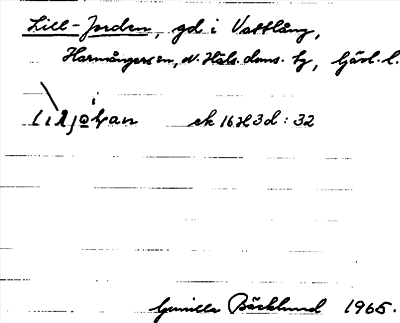 Lill-Jorden, gd i Vattlång,
Harmångers sn, N. Häls. doms. hg, Gävl. l.
ek 16H3d:32
Gunilla Bäcklund 1965.